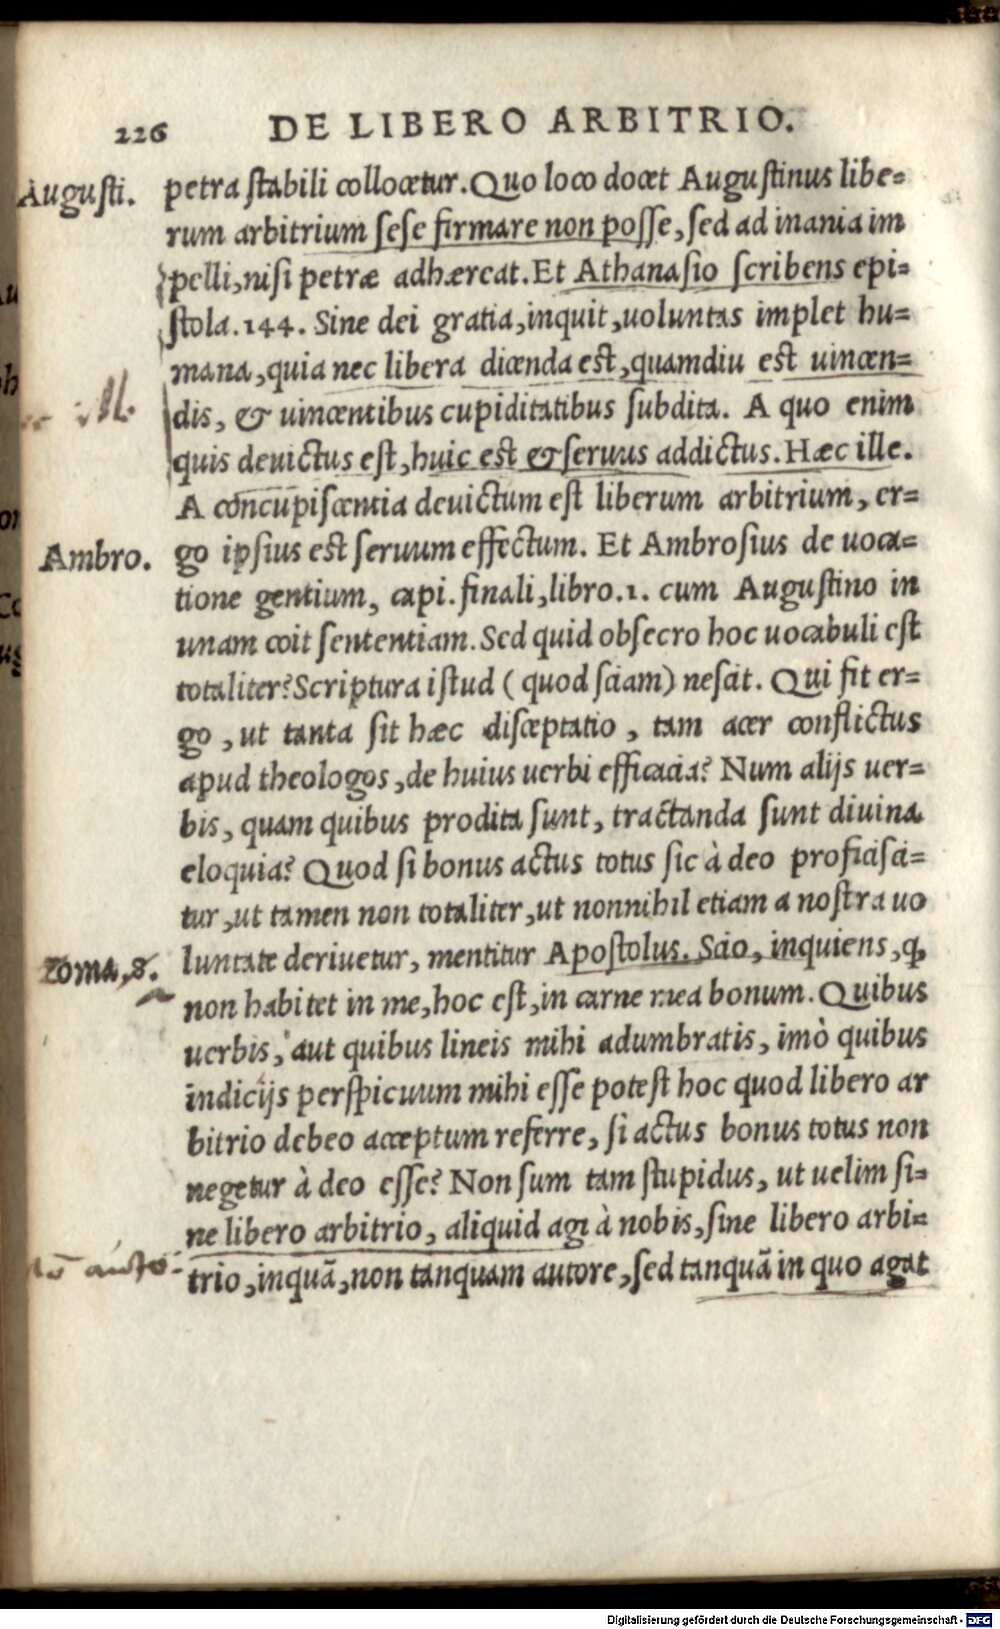 226 DE LIBERO ARBITRIO.
Augusti. petra stabili collocetur. Quo loco docet Augustinus libe=
rum arbitrium sese firmare non posse, sed ad inania im
pelli, nisi petræ adhæreat. Et Athanasio scribens epi=
stola. 144. Sine dei gratia, inquit, uoluntas implet hu=
mana, quia nec libera dicenda est, quamdiu est uincen=
dis, & uincentibus cupiditatibus subdita. A quo enim
quis deuictus est, huic est & seruus addictus. Hæc ille.
A concupiscentia deuictum est liberum arbitrium, er=
Ambro. go ipsius est seruum effectum. Et Ambrosius de uoca=
tione gentium, capi. finali, libro. 1. cum Augustino in
unam coit sententiam. Sed quid obsecro hoc uocabuli est
totaliter? Scriptura istud ( quod sciam) nescit. Qui fit er=
go, ut tanta sit hæc disceptatio, tam acer conflictus
apud theologos, de huius uerbi efficacia? Num alijs uer=
bis, quam quibus prodita sunt, tractanda sunt diuina
eloquia? Quod si bonus actus totus sic à deo proficisci=
tur, ut tamen non totaliter, ut nonnihil etiam a nostra uo
Roma, 8. luntate deriuetur, mentitur Apostolus. Scio, inquiens, ꝙ
non habitet in me, hoc est, in carne mea bonum. Quibus
uerbis, aut quibus lineis mihi adumbratis, imò quibus
indicijs perspicuum mihi esse potest hoc quod libero ar
bitrio debeo acceptum referre, si actus bonus totus non
negetur à deo esse? Non sum tam stupidus, ut uelim si=
ne libero arbitrio, aliquid agi à nobis, sine libero arbi=
trio, inquā, non tanquam autore, sed tanquā in quo agat
Digitalisierung gefördert durch die Deutsche Forschungsgemeinschaft - DFG